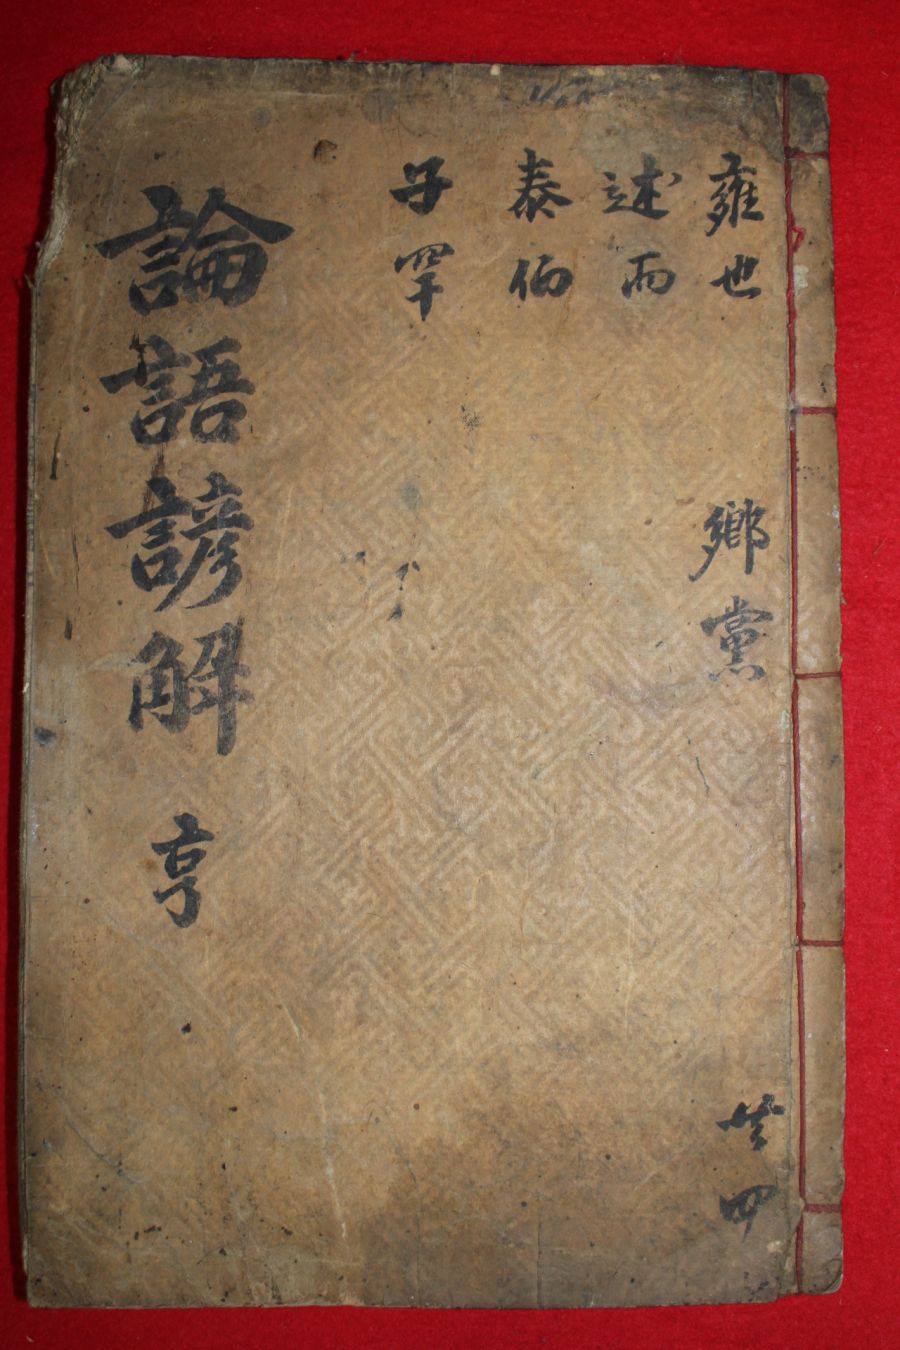 雍也
鄕黨
共四
述而
泰伯
子罕
論語諺解 亨